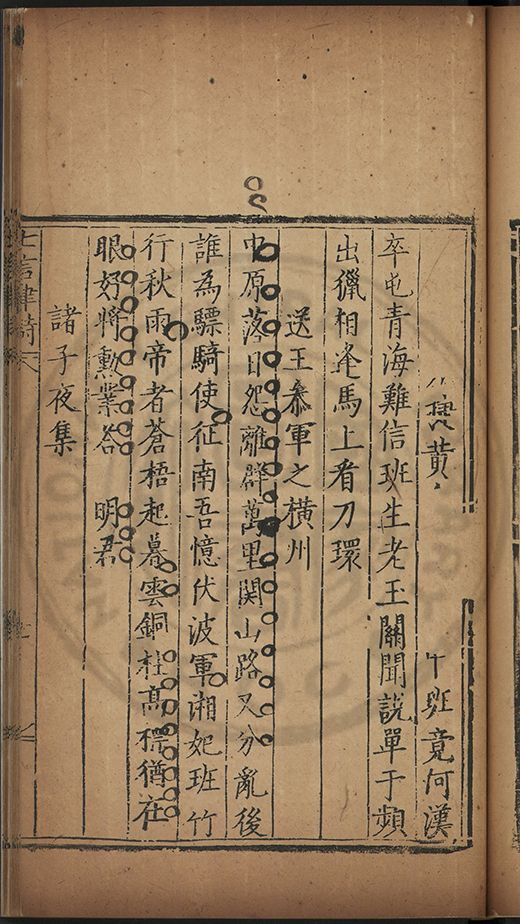 黄 班竟何漢
卒屯青海難信班生老玉關聞說單于頻
出獵相逢馬上看刀環
送王叅軍之橫州
中原落日怨離群萬里関山路又分亂後
誰為驃騎使征南吾憶伏波軍湘妃班竹
行秋雨帝者蒼梧起暮雲銅柱高標猶在
眼好將勲業答 明君
諸子夜集
七言律詩